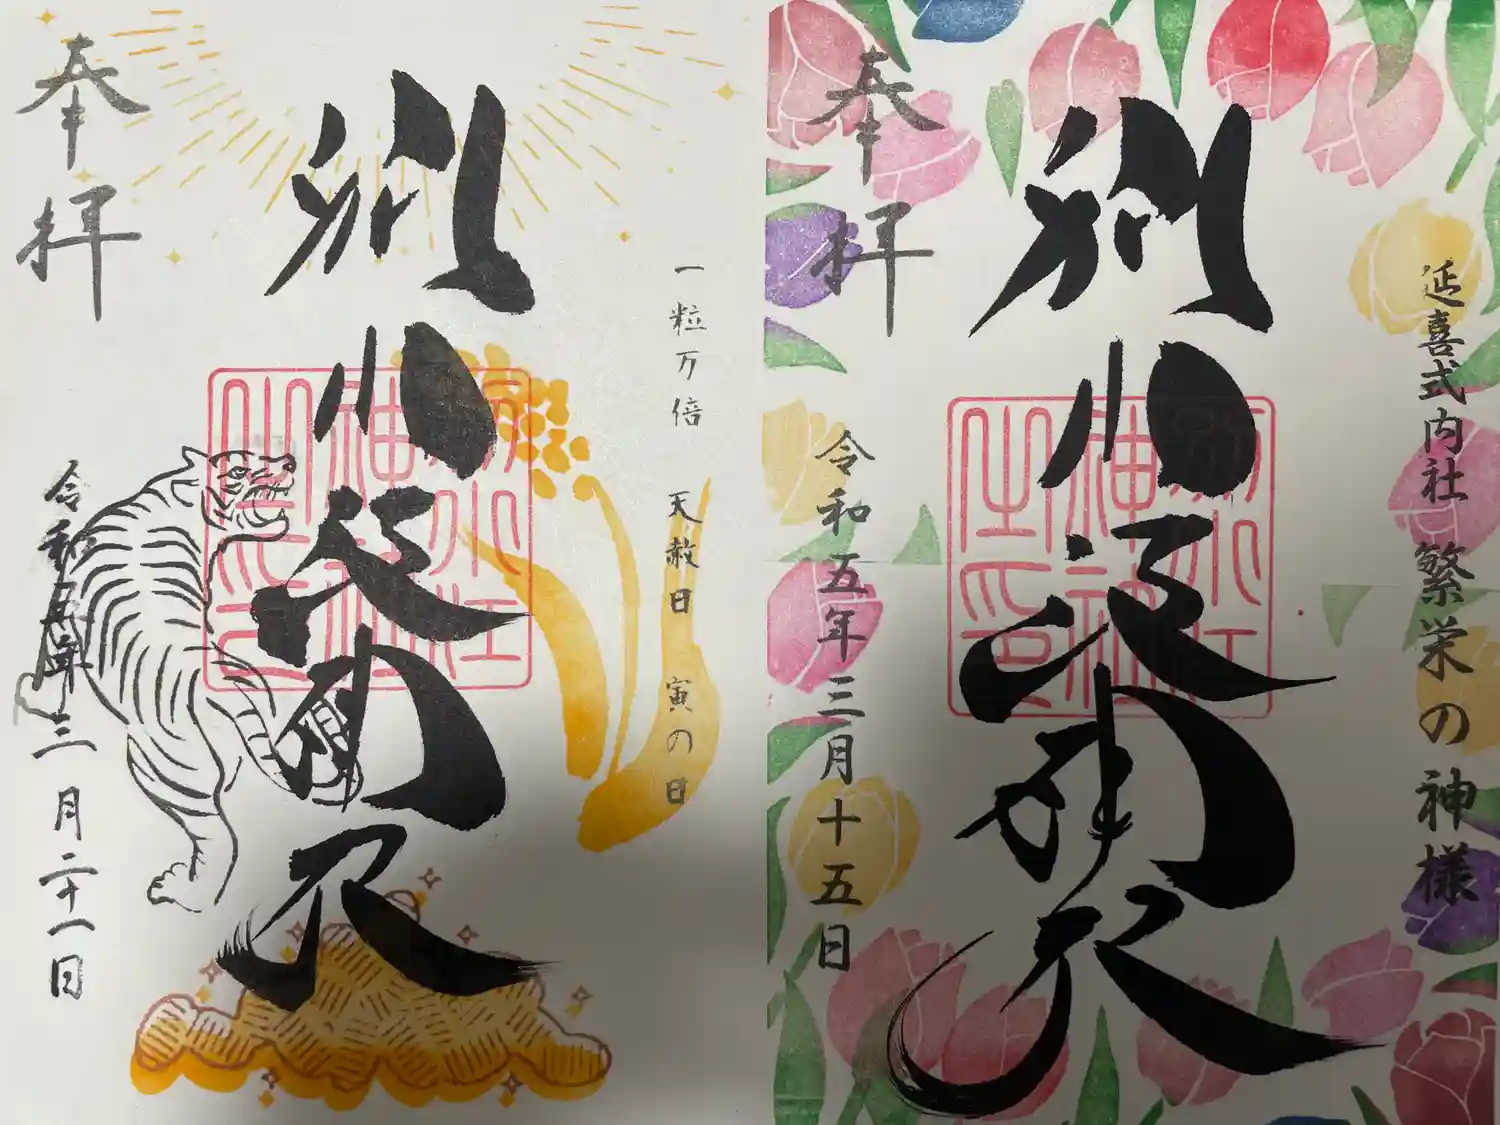 一粒万倍 天赦日 寅の日
別小江神社
別小江
神社
之印
奉拝
令和五年三月二十一日
延喜式内社 繁栄の神様
別小江神社
別小江
神社
之印
奉拝
令和五年三月十五日